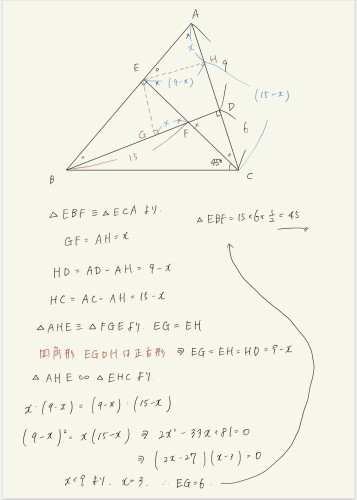 A
x
x
H
9
E
x
(9-x)
(15-x)
D
G
x
F
x
6
15
45°
B
C
△EBF≡△ECA より.
△EBF=15×6×1/2=45
GF=AH=x
HD=AD-AH=9-x
HC=AC-AH=15-x
△AHE≡△FGE より. EG=EH
四角形 EGDH は正方形 ⇒ EG=EH=HD=9-x
△AHE∽△EHC より.
x:(9-x)=(9-x):(15-x)
(9-x)²=x(15-x) ⇒ 2x²-33x+81=0
⇒ (2x-27)(x-3)=0
x<9 より. x=3. ∴ EG=6.